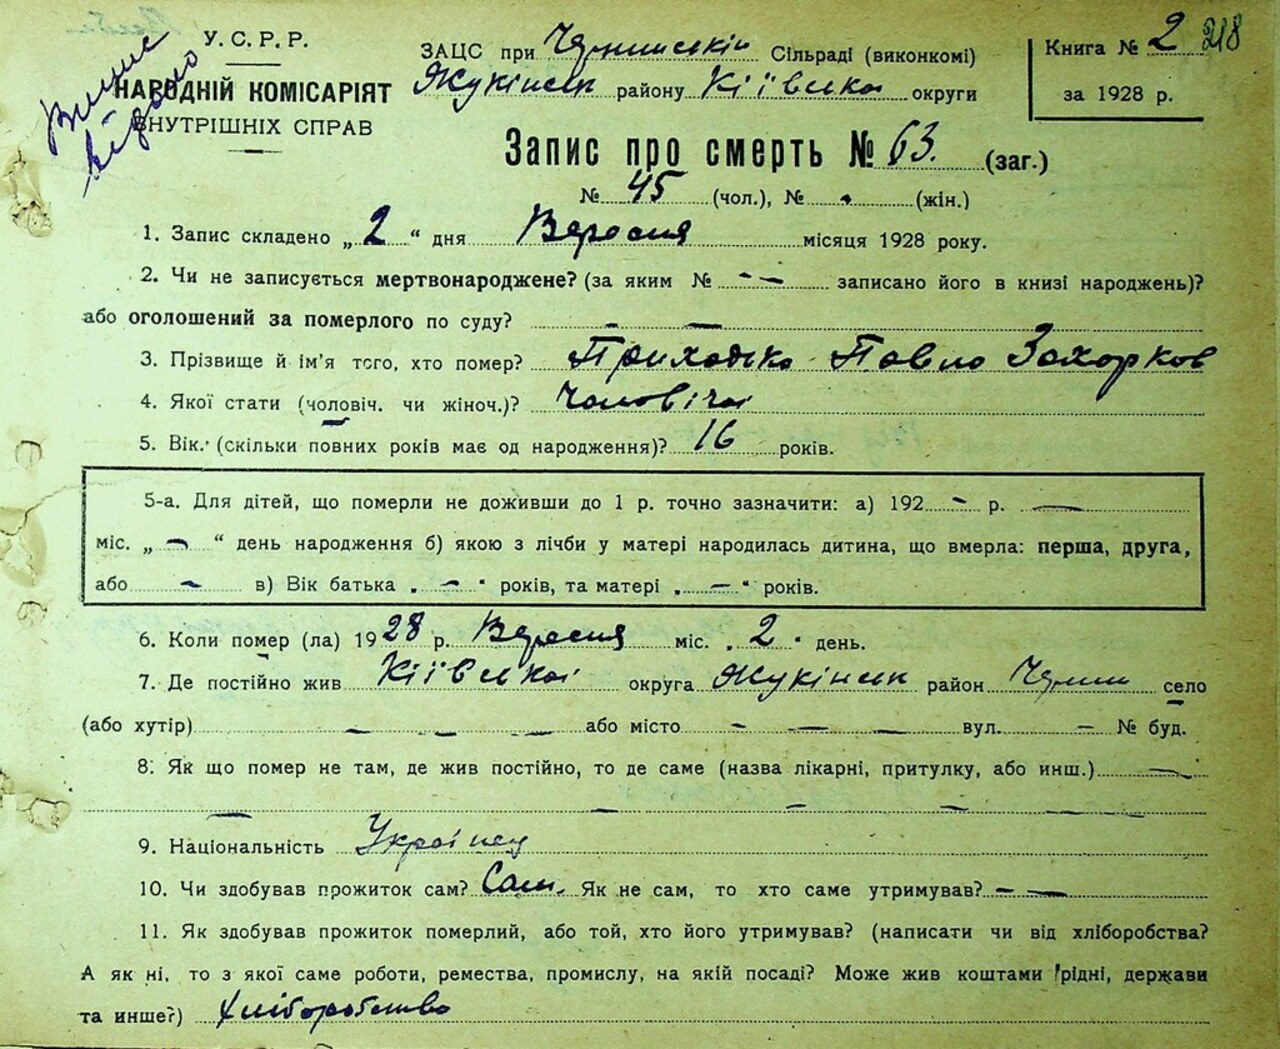 У. С. Р. Р.
НАРОДНІЙ КОМІСАРІЯТ
ВНУТРІШНІХ СПРАВ
ЗАЦС при Сільраді (виконкомі)
Жукінськ району Київської округи
Книга № 2 218
за 1928 р.
Запис про смерть № 63. (заг.)
№ 45 (чол.), № - (жін.)
1. Запис складено „2“ дня Вересня місяця 1928 року.
2. Чи не записується мертвонароджене? (за яким № - - записано його в книзі народжень)?
або оголошений за померлого по суду? - -
3. Прізвище й ім'я того, хто помер? Приходько Павло Захорков
4. Якої стати (чоловіч. чи жіноч.)? Чоловічої
5. Вік. (скільки повних років має од народження)? 16 років.
5-а. Для дітей, що померли не доживши до 1 р. точно зазначити: а) 192 - р. -
міс. „ - “ день народження б) якою з лічби у матері народилась дитина, що вмерла: перша, друга,
або - в) Вік батька „ - “ років, та матері „ - “ років.
6. Коли помер (ла) 1928 р. Вересня міс. „2“ день.
7. Де постійно жив Київської округа Жукінськ район село
(або хутір) - - - або місто - - - вул. - № буд.
8. Як що помер не там, де жив постійно, то де саме (назва лікарні, притулку, або инш.) -
- - - - -
9. Національність Українец
10. Чи здобував прожиток сам? Сам. Як не сам, то хто саме утримував? - -
11. Як здобував прожиток померлий, або той, хто його утримував? (написати чи від хліборобства?
А як ні, то з якої саме роботи, ремества, промислу, на якій посаді? Може жив коштами рідні, держави
та инше?) Хліборобство